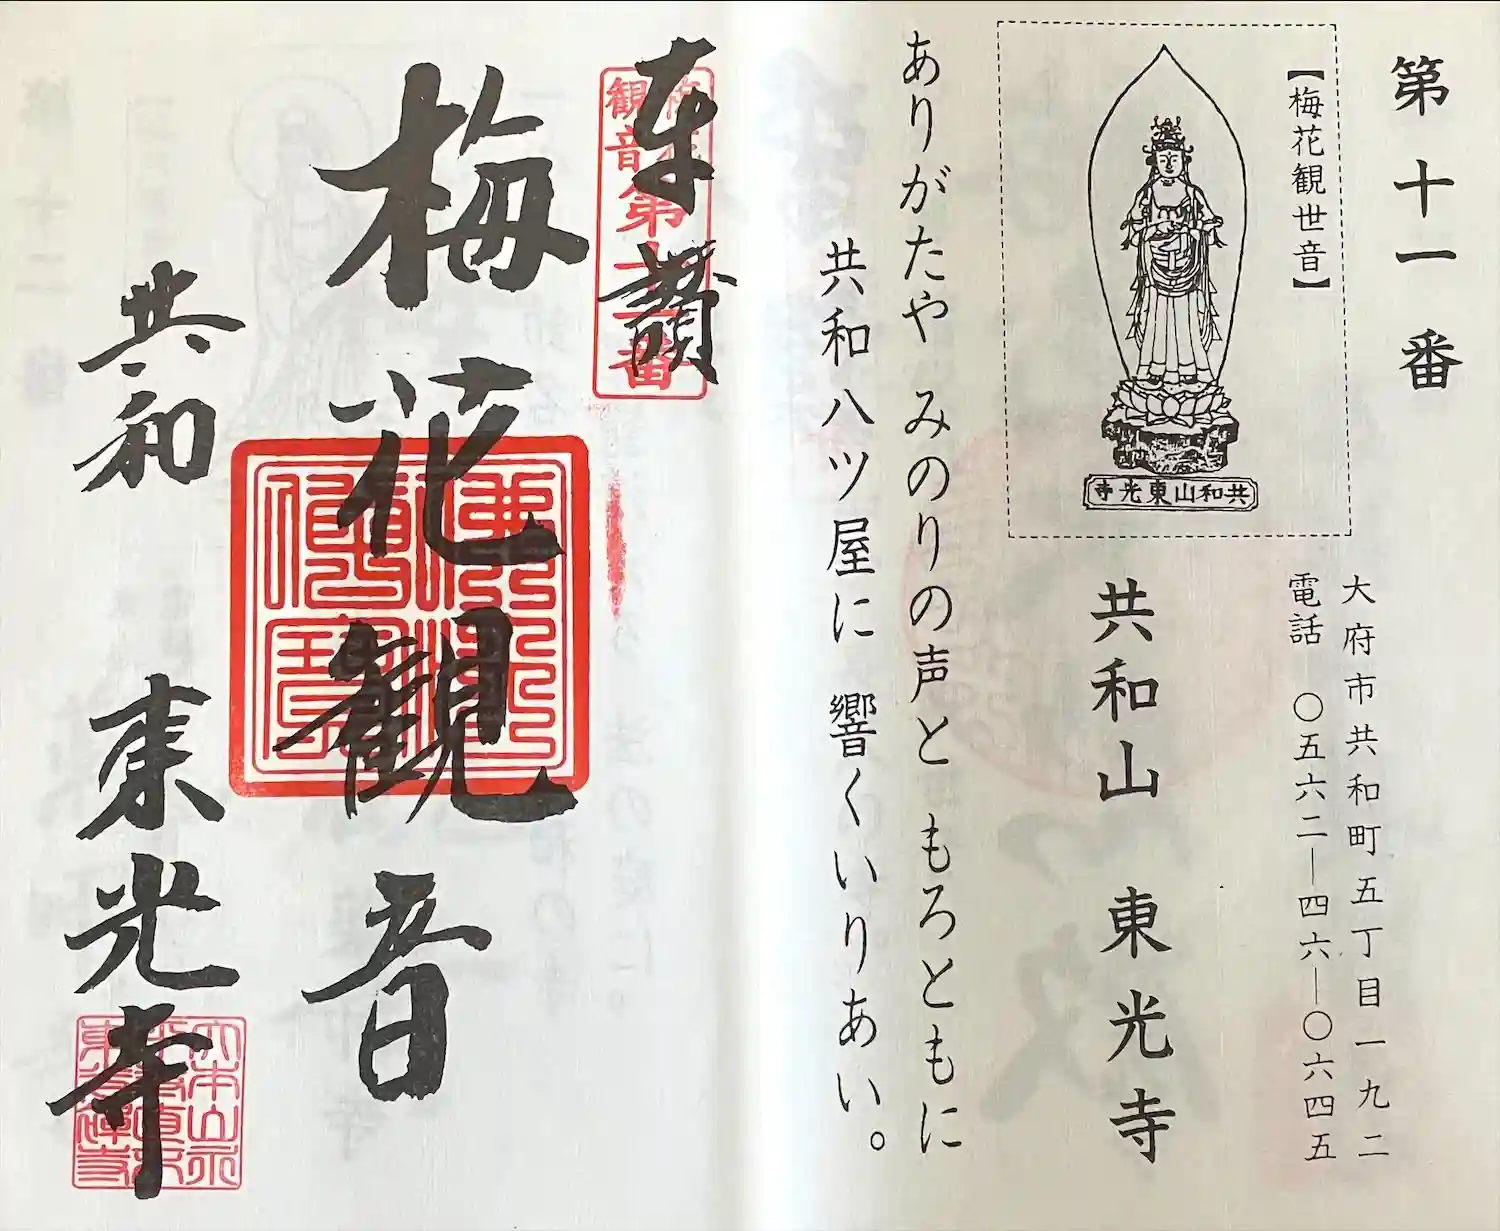 第十一番
【梅花観世音】
共和山東光寺
大府市共和町五丁目一九二
電話 〇五六二―四六―〇六四五
共和山 東光寺
ありがたや みのりの声と もろともに
共和八ツ屋に 響くいりあい。
奉讃
観音第十一番
梅花観音
佛法僧寶
共和 東光寺